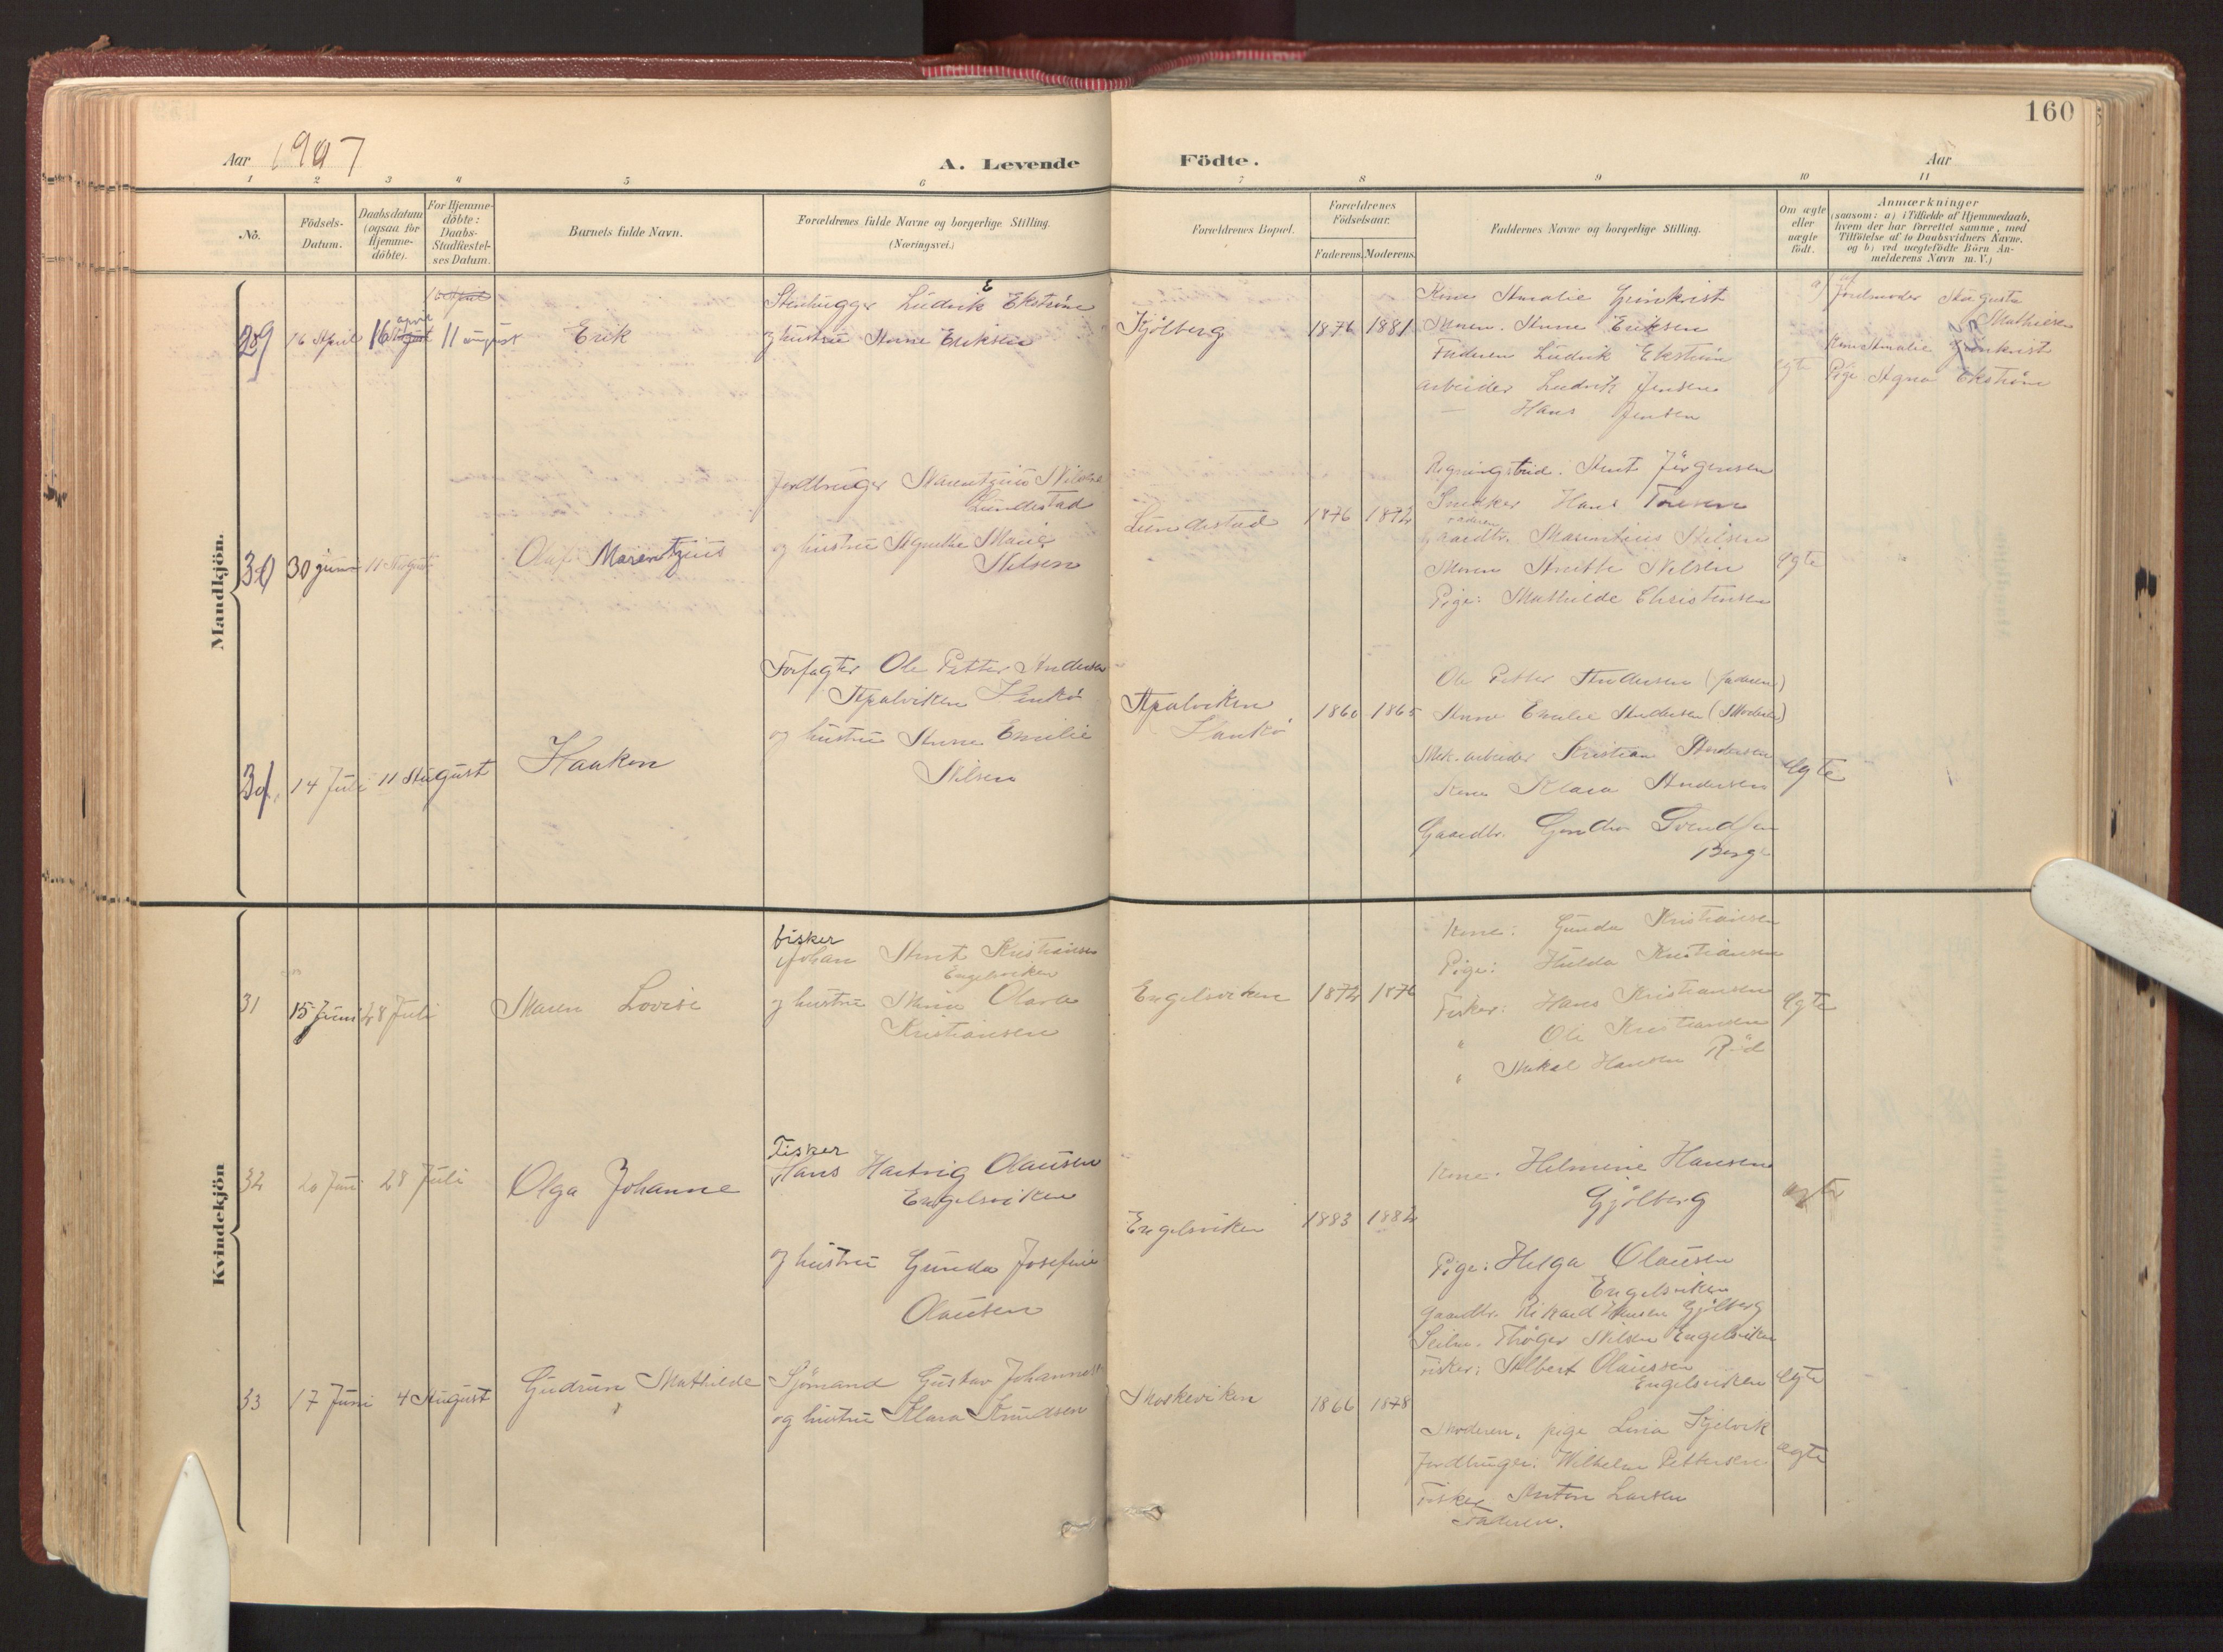 160
Aar 1907
A. Levende
Födte.
Aar
1 2 3 4 5 6 7 8 9 10 11
No.
Födsels-Datum.
Daabsdatum (ogsaa for Hjemme-döbte).
For Hjemme-döbte: Daabs-Stadfæstel-ses Datum.
Barnets fulde Navn.
Forældrenes fulde Navne og borgerlige Stilling.
(Næringsvei.)
Forældrenes Bopæl.
Forældrenes Födselsaar.
Faderens. Moderens.
Faddernes Navne og borgerlige Stilling.
Om ægte eller uægte födt.
Anmærkninger
(saasom: a) i Tilfælde af Hjemmedaab,
hvem der har forrettet samme, med
Tilföielse af to Daabsvidners Navne,
og b) ved uægtefödte Börn An-
melderens Navn m. V.)
Mandkjön.
29
16 April
16 april
11 august
Erik
Stenhugger Ludvik E Ekström
og hustru Anne Eriksen
Kjölberg
1876 1881
Kone Amalie Grönkvist
Moren. Anne Eriksen
Faderen Ludvik Ekström
arbeider Ludvik Jensen
— Hans Jensen
egte
a) Jordmoder Augusta
Mathisen
Kone Amalie Grönkvist
Pige Agna Ekström
30
30 juni
11 August
Olaf Marentzius
Jordbruger Marentzius Nilsen
Lundestad
og hustru Agnethe Marie
Nilsen
Lundestad
1876 1872
Amt Jörgensen
Snidker Hans Thoresen
faderen
gaardbr. Marentius Nilsen
Moren Anette Nilsen
Pige: Mathilde Christensen
egte
31
14 Juli
11 August
Haakon
Forpagter Ole Petter Andersen
Apalviken Hankö
og hustru Anne Emilie
Nilsen
Apalviken
Hankö
1860 1865
Ole Petter Andersen (faderen)
Anne Emilie Andersen (Moderen)
Mek. arbeider Kristian Andersen
Kone Klara Andersen
Gaardbr. Svendsen
Berge
egte
Kvindekjön
31
15 Juni
28 Juli
Maren Lovise
fisker
Johan Arnt Kristiansen
Engelsviken
og hustru Mina Olava
Kristiansen
Engelsviken
1872 1876
Kone: Gunda Kristiansen
Pige: Hulda Kristiansen
Fisker: Hans Kristiansen
" Ole Kristiansen
" Mikal Hansen Röd
egte
32
20 Juni
28 Juli
Olga Johanne
Fisker
Hans Hartvig Olausen
Engelsviken
og hustru Gunda Josefine
Olausen
Engelsviken
1883 1882
Kone. Helmine Hansen
Gjölberg
Pige: Helga Olausen
Engelsviken
Gaardbr. Rikard Hansen Gjölberg
Seilm. Thöger Nilsen Engelsviken
Fisker: Albert Olaussen
Engelsviken
egte
egte
33
17 Juni
4 August
Gudrun Mathilde
Sjömand Gustav Johannesen
og hustru Klara Knudsen
Moskeviken
1866 1878
Moderen, pige Lina Kjelvik
Jordbruger: Wilhelm Pettersen
Fisker Anton Larsen
Faderen.
ægte